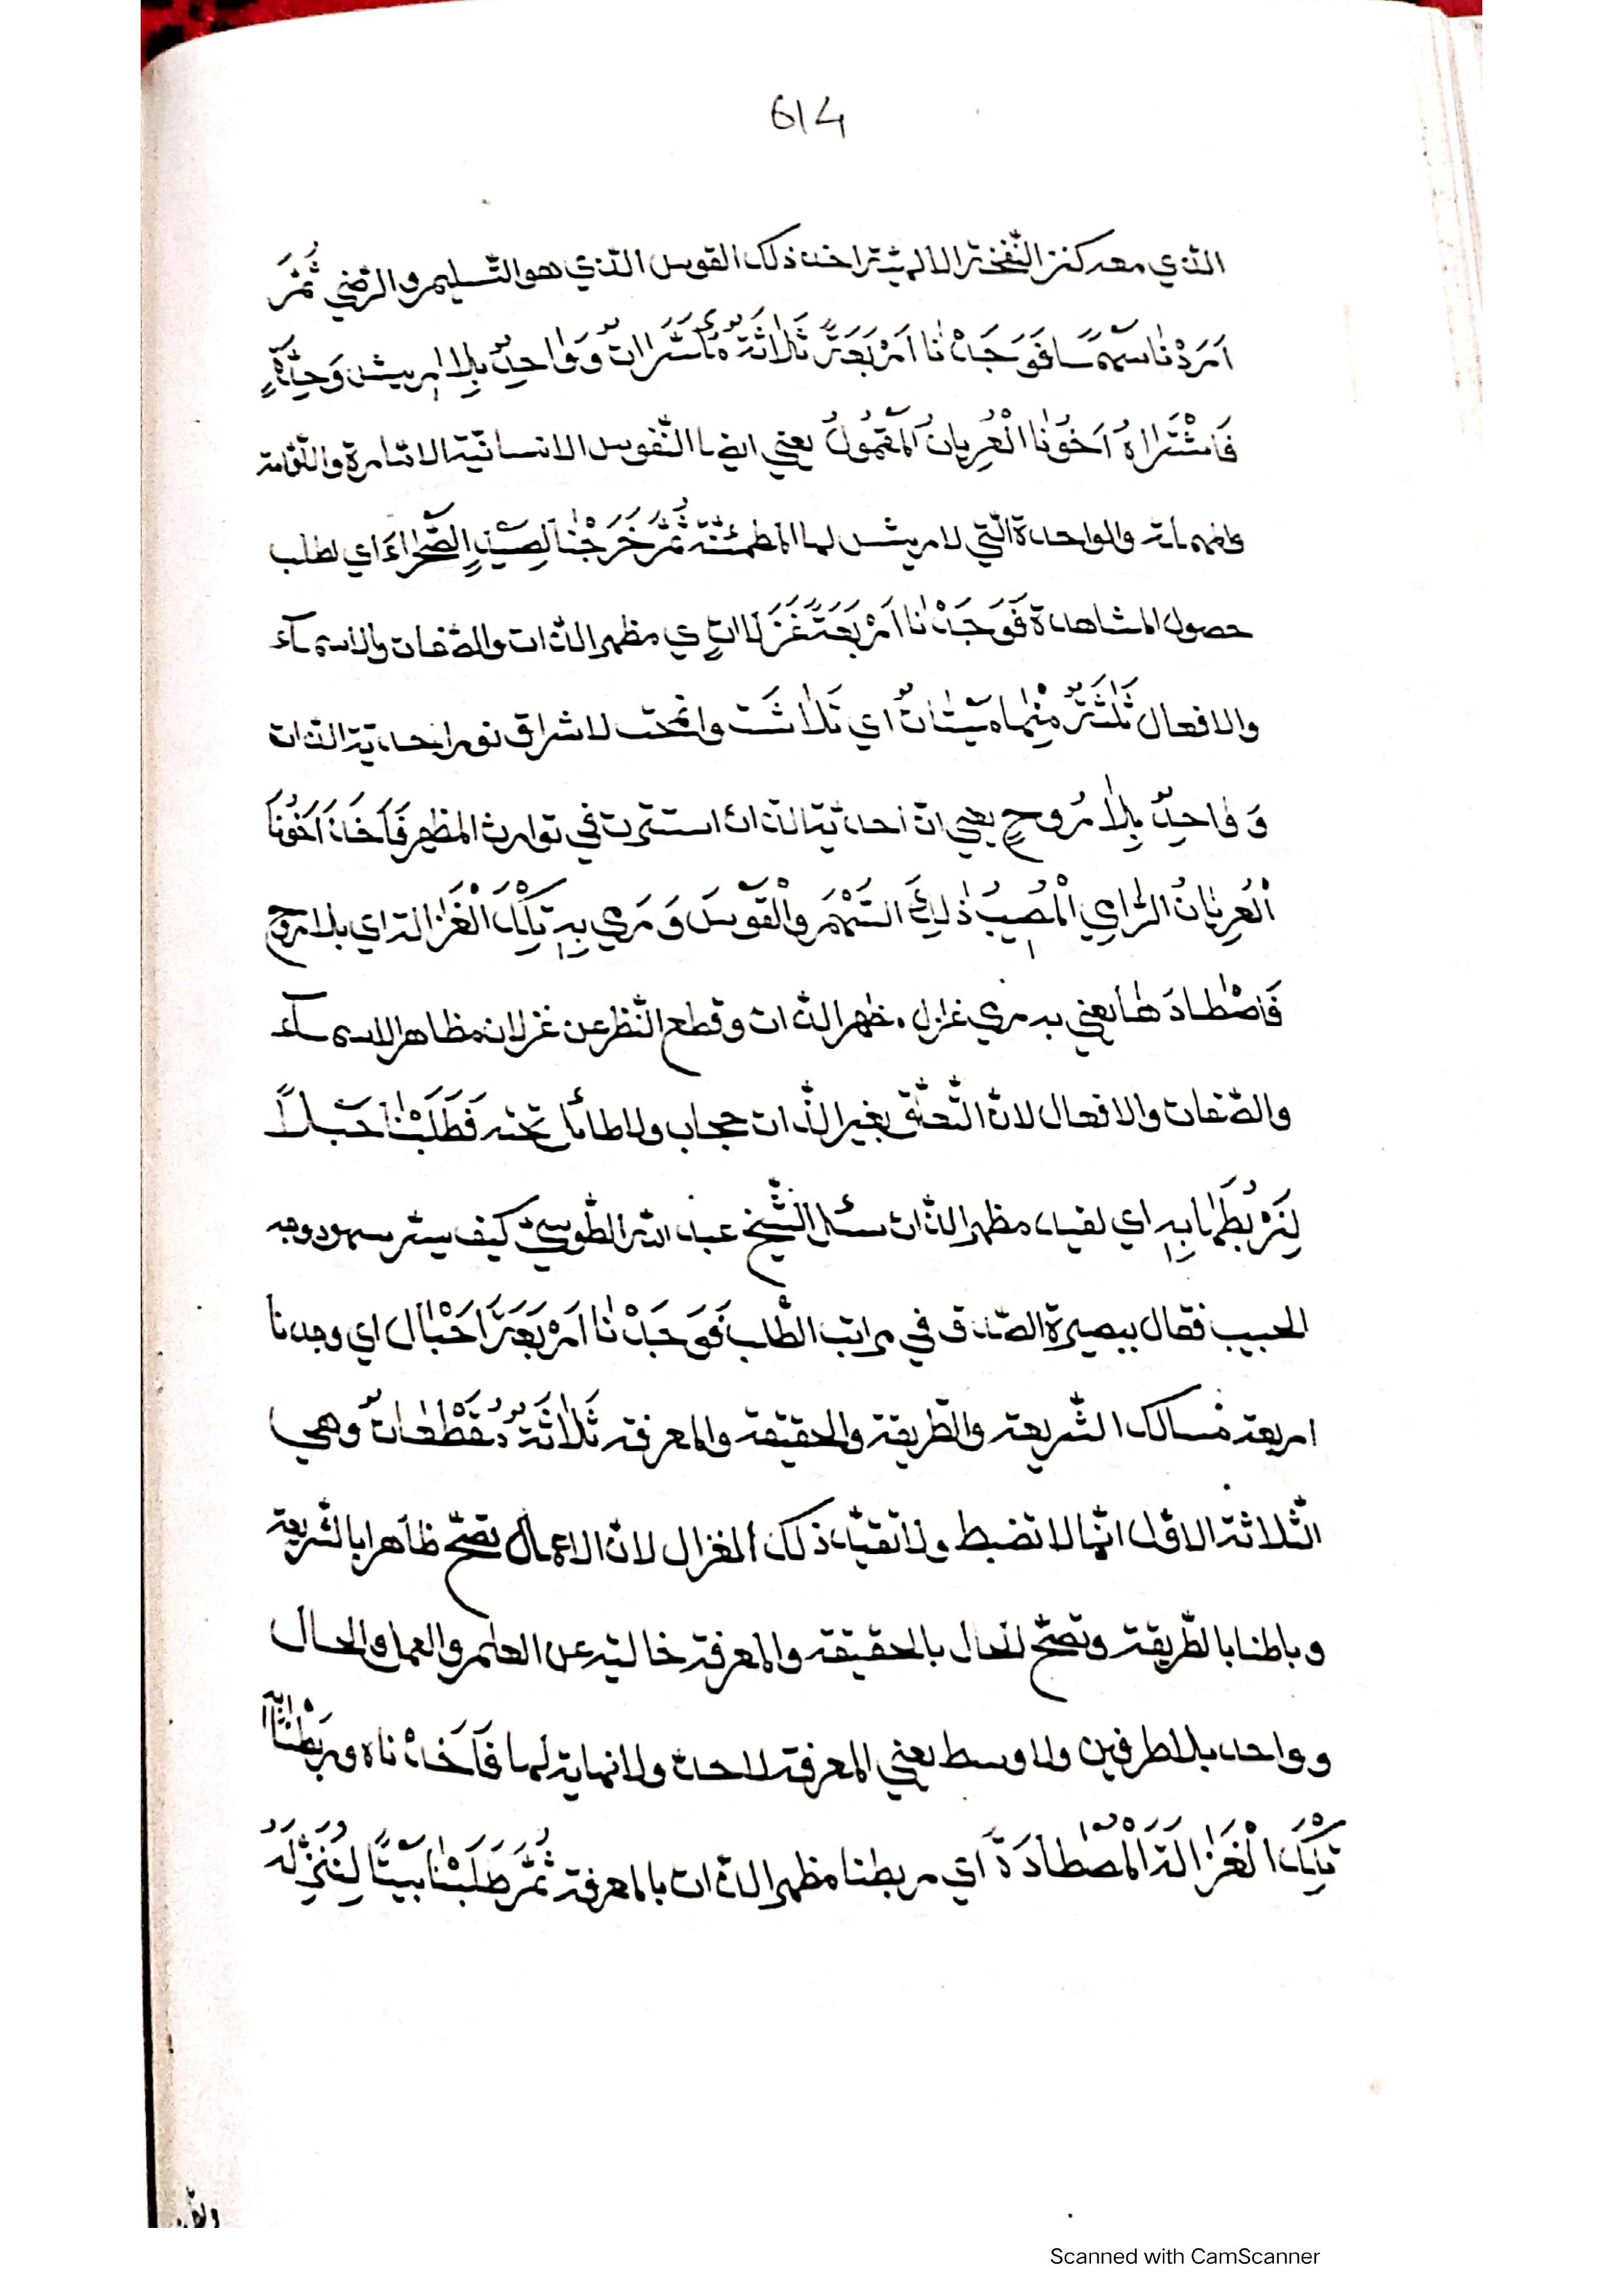 614
الذي معه كنز النفخة الالهية اخذ ذلك القوس الذي هو التسليم والرضى ثُمَّ
اَرَدْنَا سَهْمًا فَوَجَدْنَا اَرْبَعَةً ثَلَاثَةٌ مُكَسَّرَاتٌ وَوَاحِدٌ بِلَا رِيشٍ وَحِدَّةٍ
فَاشْتَرَاهُ اَخُونَا الْعُرْيَانُ يعني ايضا النّفوس الانسانيّة الامّارة واللّوّامة
والملهمة والواحدة الّتي لا ريش لها المطمئنّة ثُمَّ خَرَجْنَا لِصَيْدِ الصَّحْرَاءَ اي لطلب
حصول المشاهدة فَوَجَدْنَا اَرْبَعَةَ غَزَلَاتٍ مظهر الذّات والصّفات والاسمآء
والافعال ثَلٰثَةٌ مِنْهَا مَيِّتَاتٌ اي تلاشت وانمحت لاشراق نور احديّة الذّات
وَوَاحِدٌ بِلَا رُوحٍ يعني انّ احديّة الذّات استترت في توارث المظهر فَاَخَذَ اَخُونَا
الْعُرْيَانُ الرَّامِي الْمُصِيبُ ذٰلِكَ السَّهْمَ وَالْقَوْسَ وَرَمٰي بِهِ تِلْكَ الْغَزَالة اي بلا روح
فَاصْطَادَهَا يعني به رمي غزل مظهر الذّات وقطع النّظر عن غزلان مظاهر الاسمآء
والصّفات والافعال لانّ التّعلّق بغير الذّات حجاب ولا طائل تحته فَطَلَبْنَا حَبْلًا
لِنَرْبُطَهَا بِهِ اي لقيد مظهر الذّات سئل الشّيخ عبد الله الطّوسيّ كيف يستر شهود وجه
الحبيب فقال ببصيرة الصّدق في مراتب الطّلب فَوَجَدْنَا اَرْبَعَةَ اَحْبَال اي وجدنا
اربعة مسالك الشّريعة والطّريقة والحقيقة والمعرفة ثَلَاثَةٌ مُقَطَّعَاتٌ وهي
الثّلاثة الاول انّها لا تضبط ولا تقيّد ذلك الغزال لانّ الاعمال تصحّ ظاهرا بالشّريعة
وباطنا بالطّريقة وتصحّ الحال بالحقيقة والمعرفة خالية عن العلم والعمل والحال
وواحد بلا طرفين ولا وسط يعني المعرفة لا حدّ ولا نهاية لها فَاَخَذْنَاه وربطنا به
تِلْكَ الْغَزَالَةَ الْمُصْطَادَةَ اي ربطنا مظهر الذّات بالمعرفة ثُمَّ طَلَبْنَا بَيْتًا لِنُنْزِلَهُ
Scanned with CamScanner